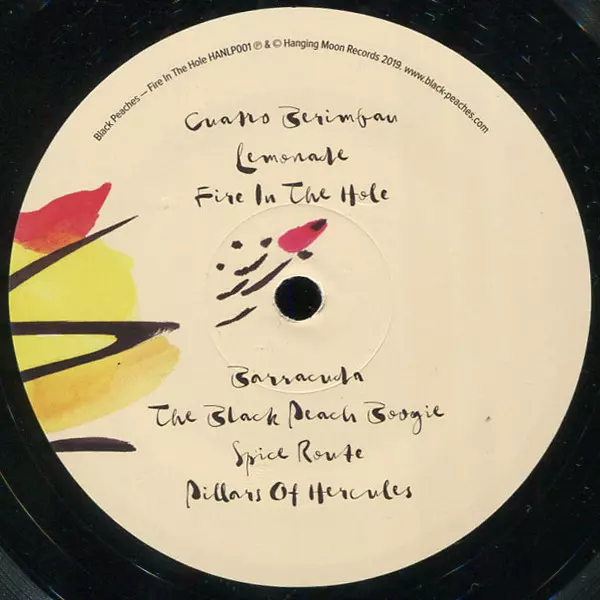 Black Peaches — Fire In The Hole HANLP001 ℗ & © Hanging Moon Records 2019. www.black-peaches.com
Cuatro Berimbau
Lemonade
Fire In The Hole
Barracuda
The Black Peach Boogie
Spice Route
Pillars Of Hercules